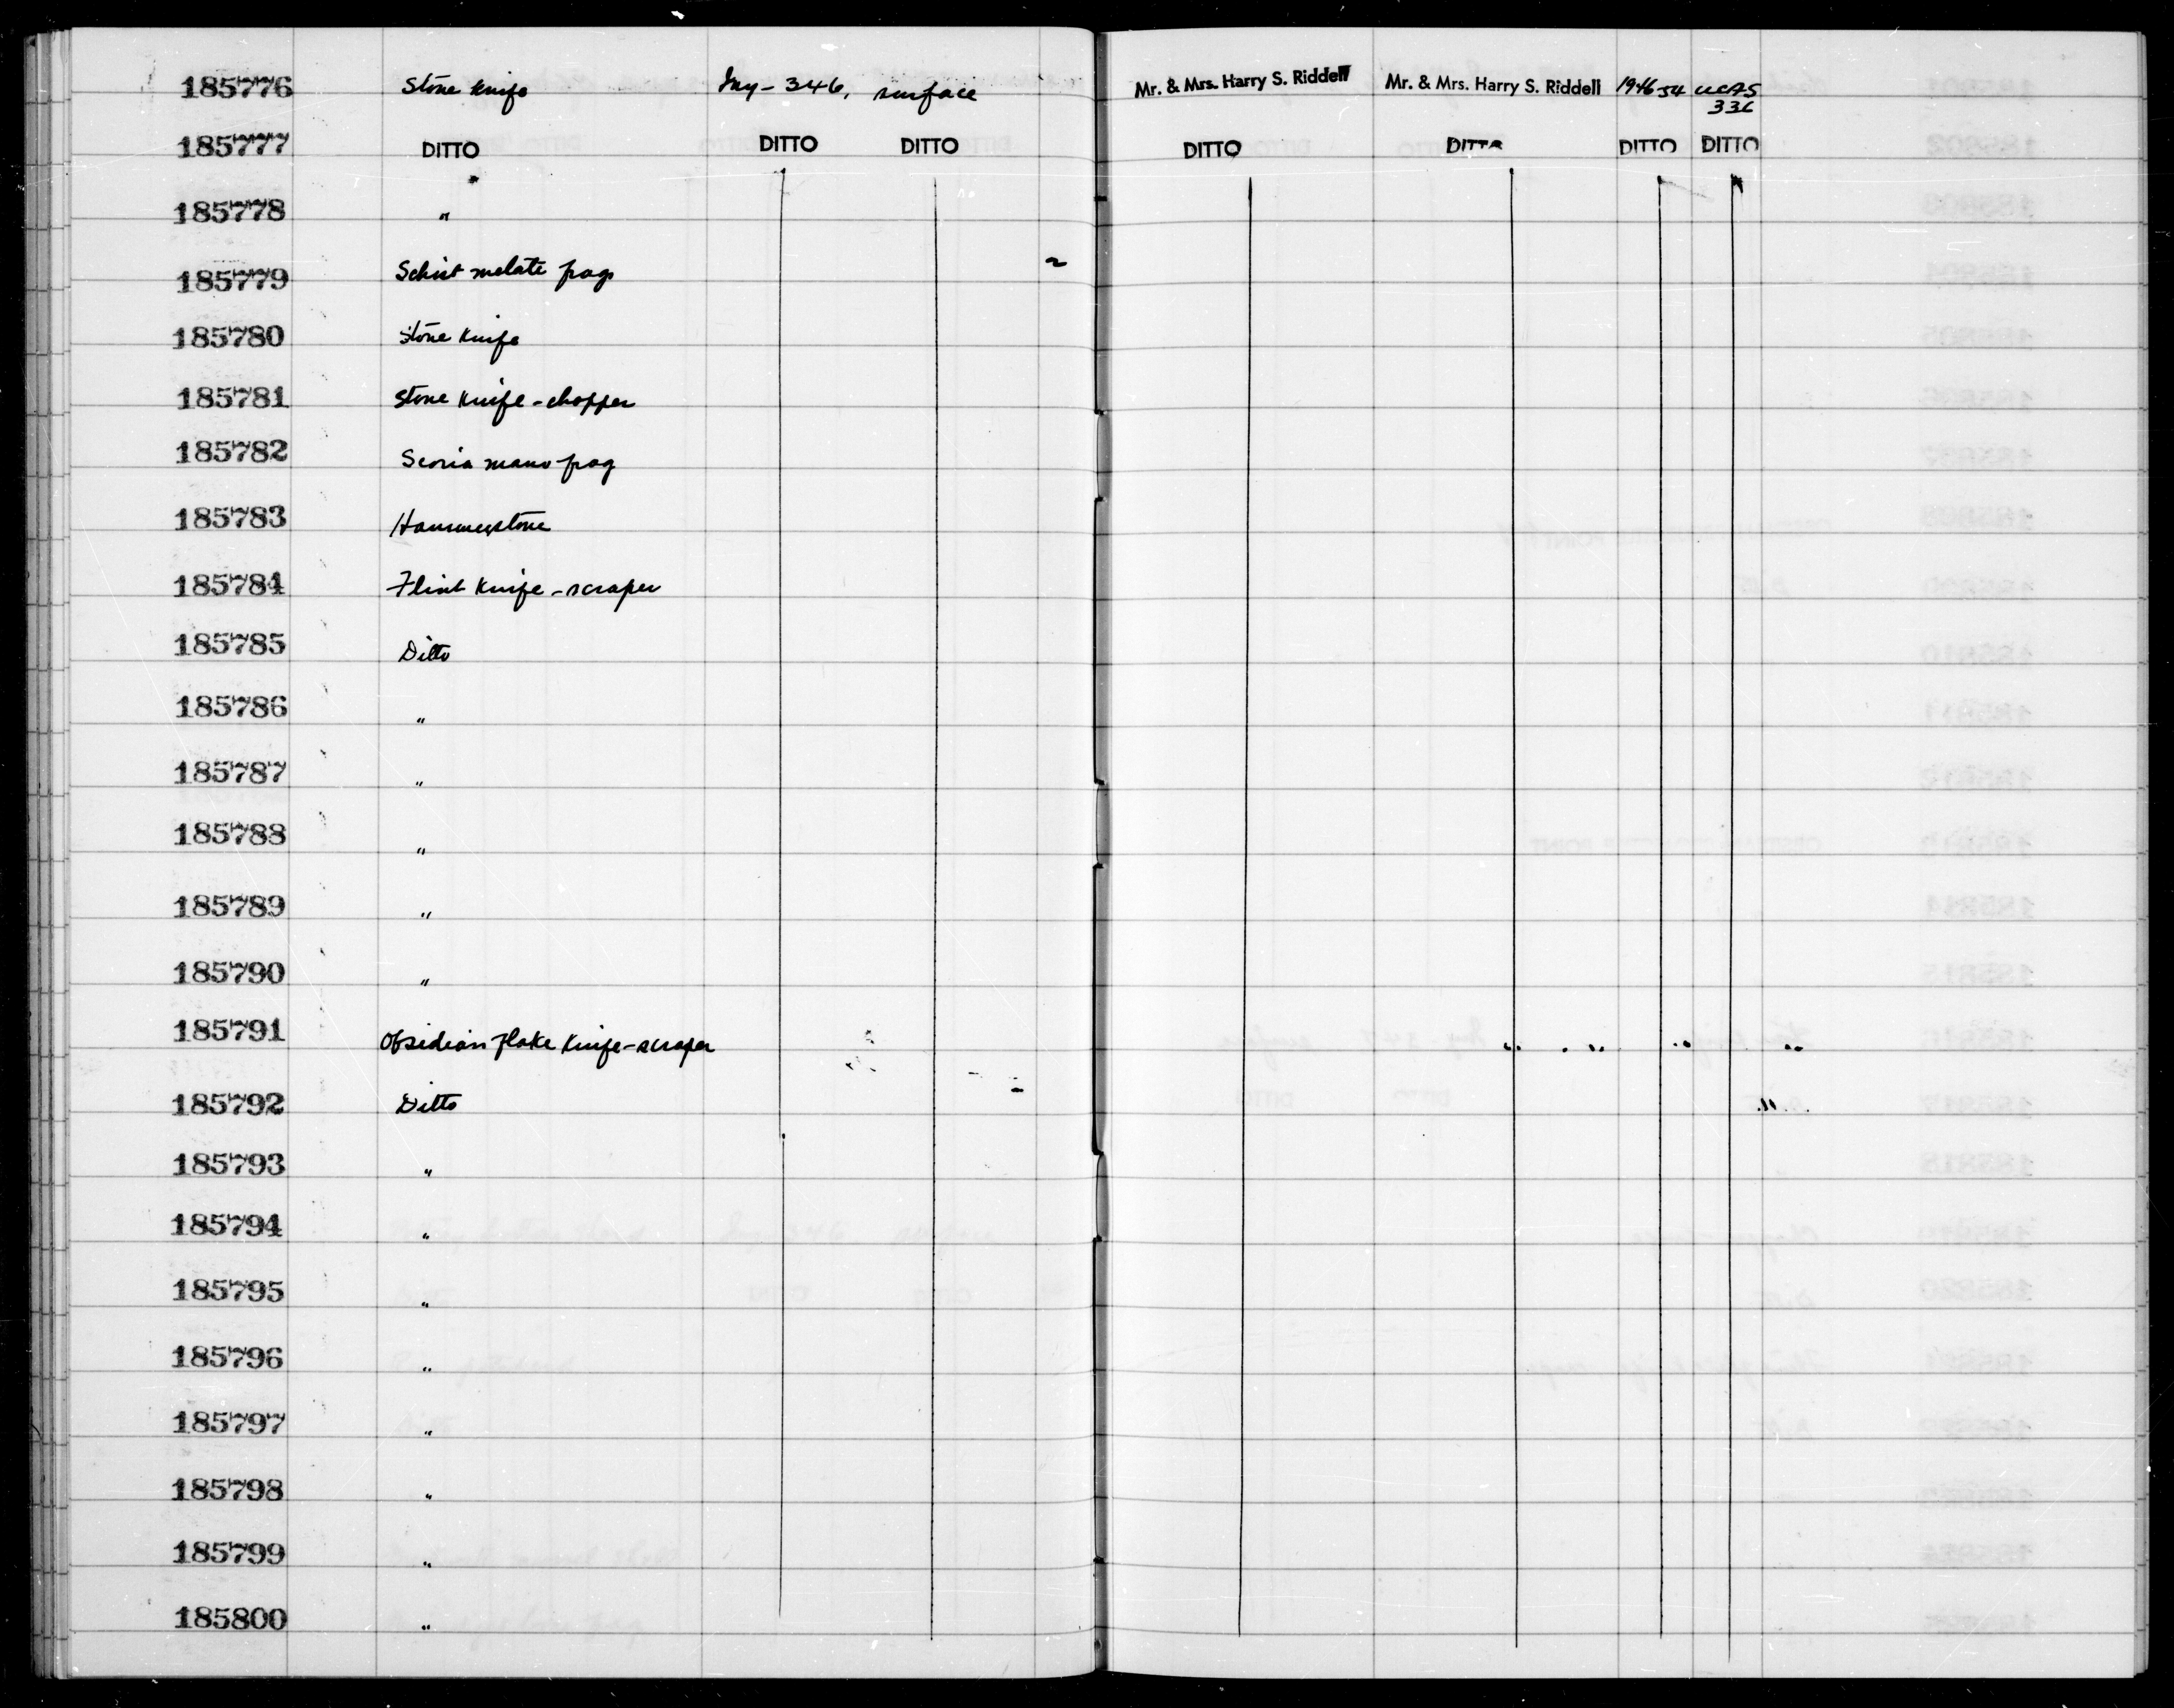 185776 Stone knife Iny-346, surface Mr. & Mrs. Harry S. Riddell Mr. & Mrs. Harry S. Riddell 1946-54 UCAS
336
185777 DITTO DITTO DITTO DITTO DITTO DITTO DITTO
185778 "
185779 Schist metate frag.
185780 Stone knife
185781 Stone knife-chopper
185782 Scoria mano frag
185783 Hammerstone
185784 Flint knife-scraper
185785 Ditto
185786 "
185787 "
185788 "
185789 "
185790 "
185791 Obsidian flake knife-scraper
185792 Ditto
185793 "
185794 "
185795 "
185796 "
185797 "
185798 "
185799 "
185800 "